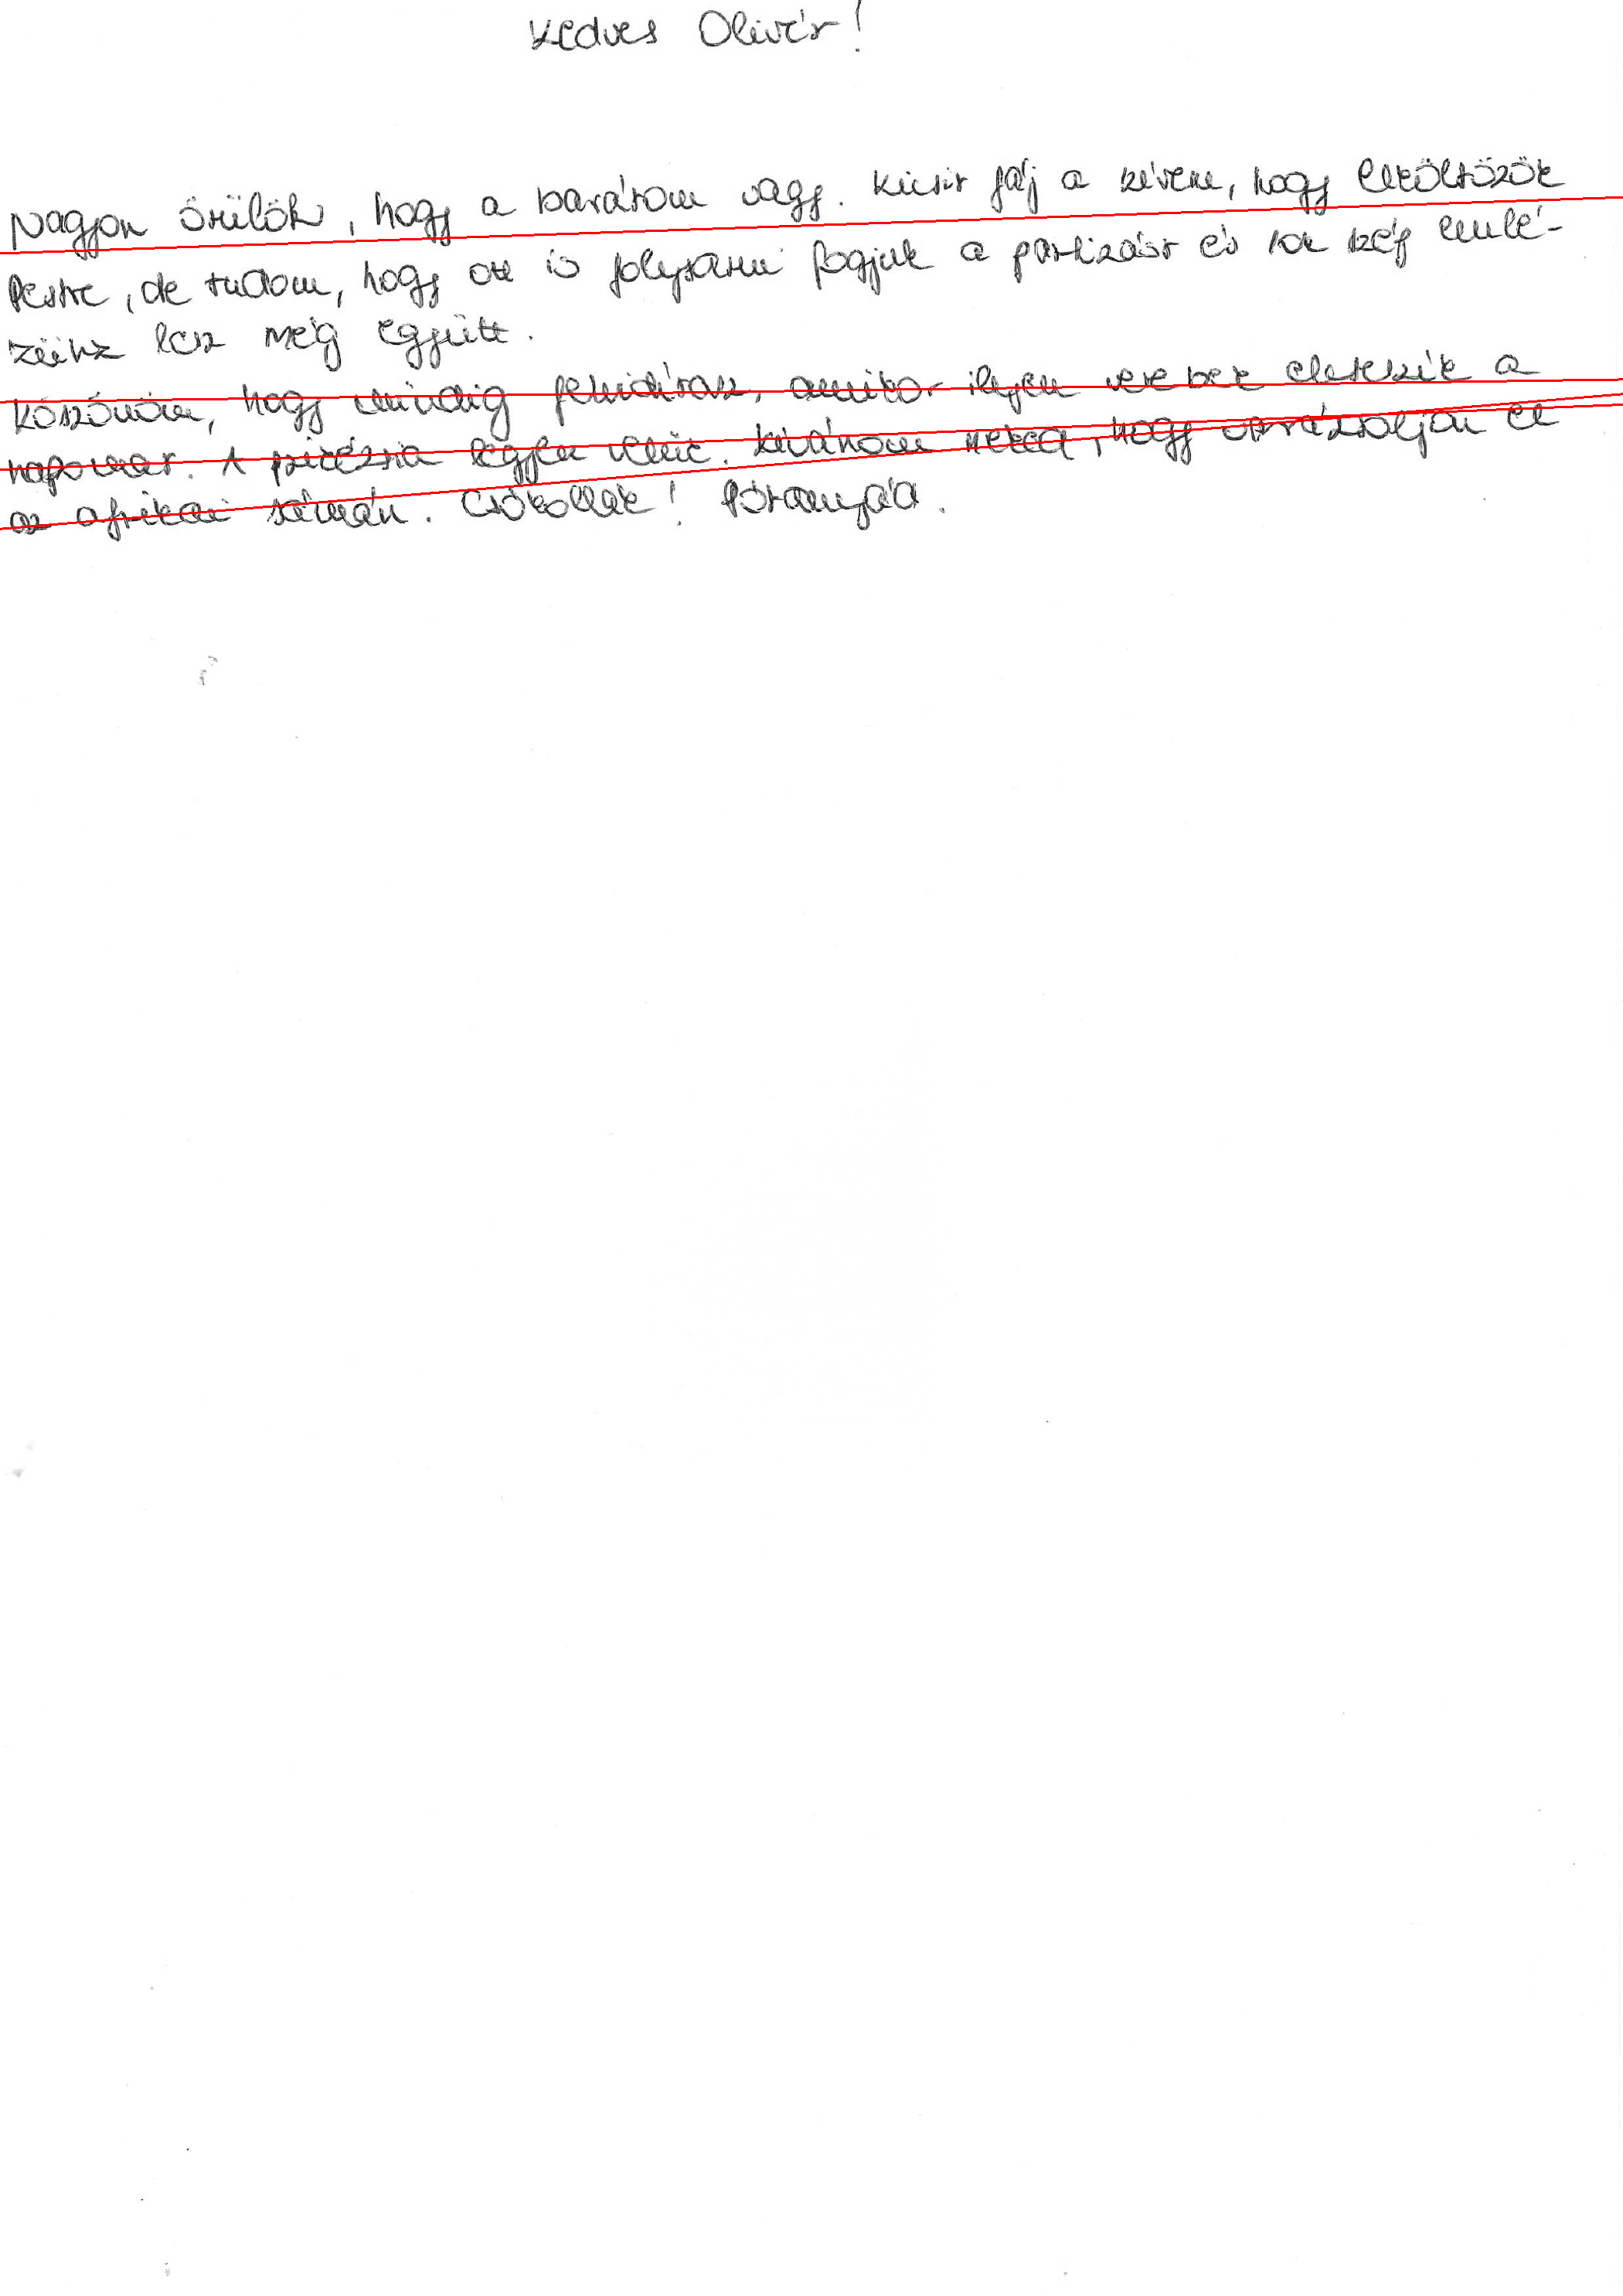 Kedves Olivér!
Nagyon örülök, hogy a barátom vagy. Kicsit fáj a szívem, hogy elköltözök
Pestre, de tudom, hogy ott is folytatni fogjuk a partizást és sok szép emlé-
künk lesz még együtt.
Köszönöm, hogy mindig felvidítasz, amikor ilyen verebek elteszik a
napomat. A legyen Kívánom neked, hogy varázsoljon el
az afrikai sámán. Csókollak! Pótanyád.